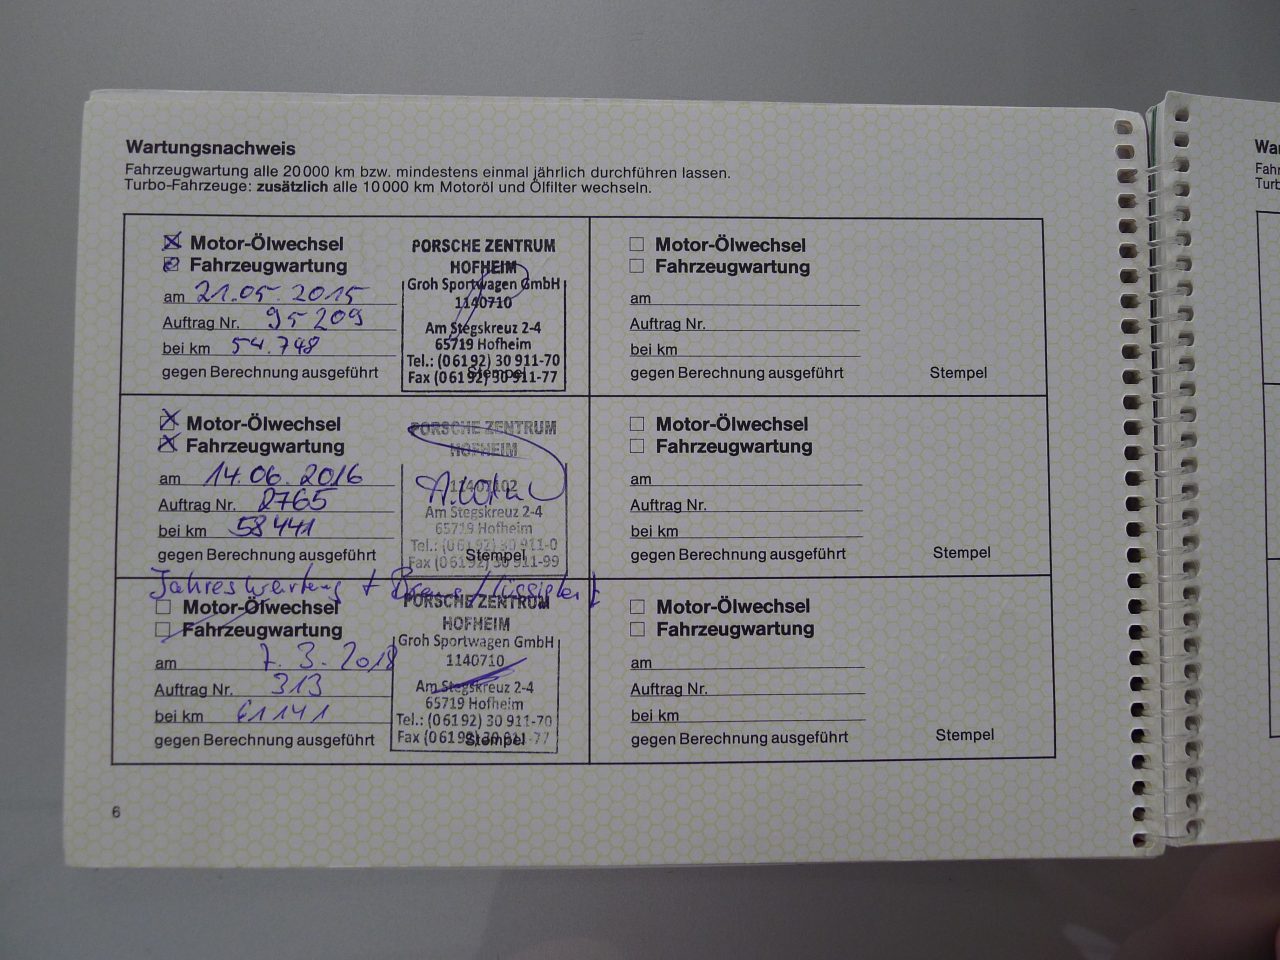 Wartungsnachweis
Fahrzeugwartung alle 20 000 km bzw. mindestens einmal jährlich durchführen lassen.
Turbo-Fahrzeuge: zusätzlich alle 10 000 km Motoröl und Ölfilter wechseln.
Motor-Ölwechsel
Fahrzeugwartung
am 21.05.2015
Auftrag Nr. 95209
bei km 54.748
gegen Berechnung ausgeführt
PORSCHE ZENTRUM
HOFHEIM
Groh Sportwagen GmbH
1140710
Am Stegskreuz 2-4
65719 Hofheim
Tel.: (0 61 92) 30 911-70
Fax (0 61 92) 30 911-77
Stempel
Motor-Ölwechsel
Fahrzeugwartung
am
Auftrag Nr.
bei km
gegen Berechnung ausgeführt
Stempel
Motor-Ölwechsel
Fahrzeugwartung
am 14.06.2016
Auftrag Nr. 2765
bei km 58441
gegen Berechnung ausgeführt
PORSCHE ZENTRUM
HOFHEIM
11407102
Am Stegskreuz 2-4
65719 Hofheim
Tel.: (0 61 92) 30 911-0
Fax (0 61 92) 30 911-99
Stempel
Motor-Ölwechsel
Fahrzeugwartung
am
Auftrag Nr.
bei km
gegen Berechnung ausgeführt
Stempel
Jahreswartung + Bremsflüssigkeit
Motor-Ölwechsel
Fahrzeugwartung
am 7.3.2018
Auftrag Nr. 313
bei km 61141
gegen Berechnung ausgeführt
PORSCHE ZENTRUM
HOFHEIM
Groh Sportwagen GmbH
1140710
Am Stegskreuz 2-4
65719 Hofheim
Tel.: (0 61 92) 30 911-70
Fax (0 61 92) 30 911-77
Stempel
Motor-Ölwechsel
Fahrzeugwartung
am
Auftrag Nr.
bei km
gegen Berechnung ausgeführt
Stempel
6